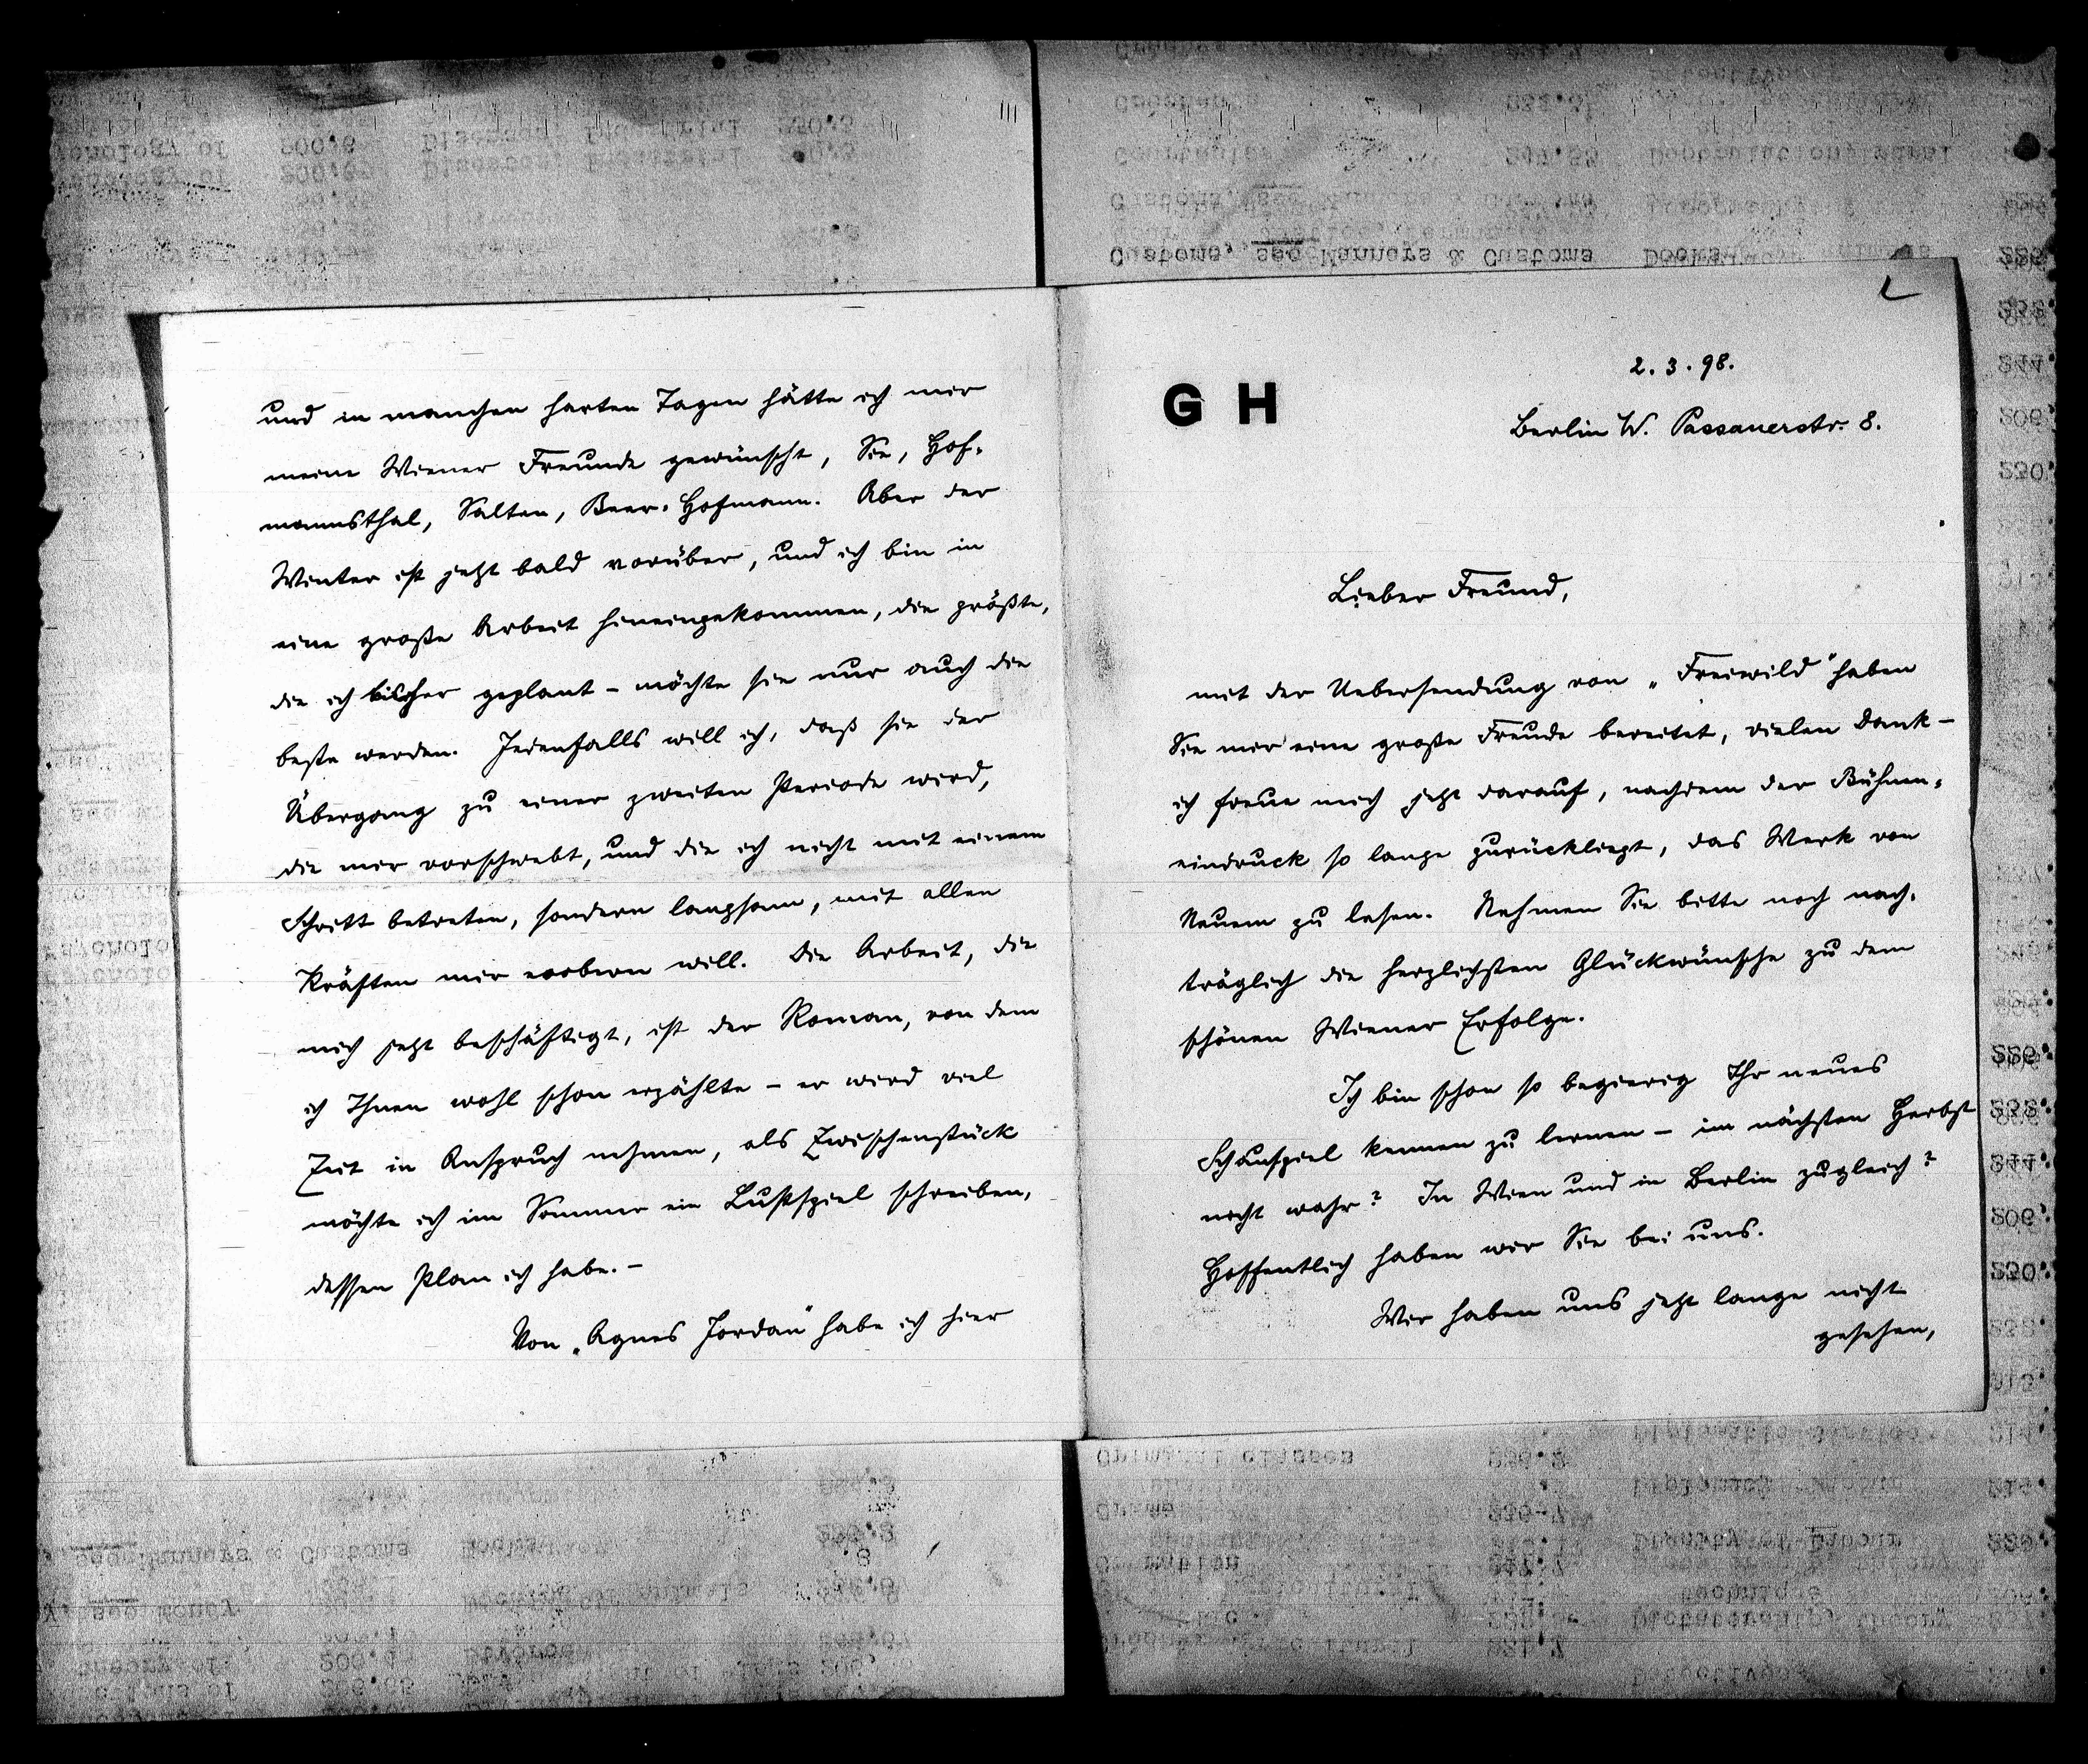 GH
2. 3. 98.
Berlin W. Passauerstr. 8.
Lieber Freund,
mit der Uebersendung von „Freiwild“ haben
Sie mir eine große Freude bereitet, vielen Dank –
ich freue mich jetzt darauf, nachdem der Bühnen-
eindruck so lange zurückliegt, das Werk von
Neuem zu lesen. Nehmen Sie bitte noch nach-
träglich die herzlichsten Glückwünsche zu dem
schönen Wiener Erfolge.
Ich bin schon so begierig Ihr neues
Schauspiel kennen zu lernen – im nächsten Herbst
nicht wahr? In Wien und in Berlin zugleich?
Hoffentlich haben wir Sie bei uns.
Wir haben uns jetzt lange nicht
gesehen,
und in manchen harten Tagen hätte ich mir
meine Wiener Freunde gewünscht, Sie, Hof-
mannsthal, Salten, Beer-Hofmann. Aber der
Winter ist jetzt bald vorüber, und ich bin in
eine große Arbeit hineingekommen, die größte,
die ich bisher geplant – möchte sie nur auch die
beste werden. Jedenfalls will ich, daß sie der
Übergang zu einer zweiten Periode wird,
die mir vorschwebt, und die ich nicht mit einem
Schritt betreten, sondern langsam, mit allen
Kräften mir erobern will. Die Arbeit, die
mich jetzt beschäftigt, ist der Roman, von dem
ich Ihnen wohl schon erzählte – er wird viel
Zeit in Anspruch nehmen, als Zwischenstück
möchte ich im Sommer ein Lustspiel schreiben,
dessen Plan ich habe. –
Von „Agnes Jordan“ habe ich hier